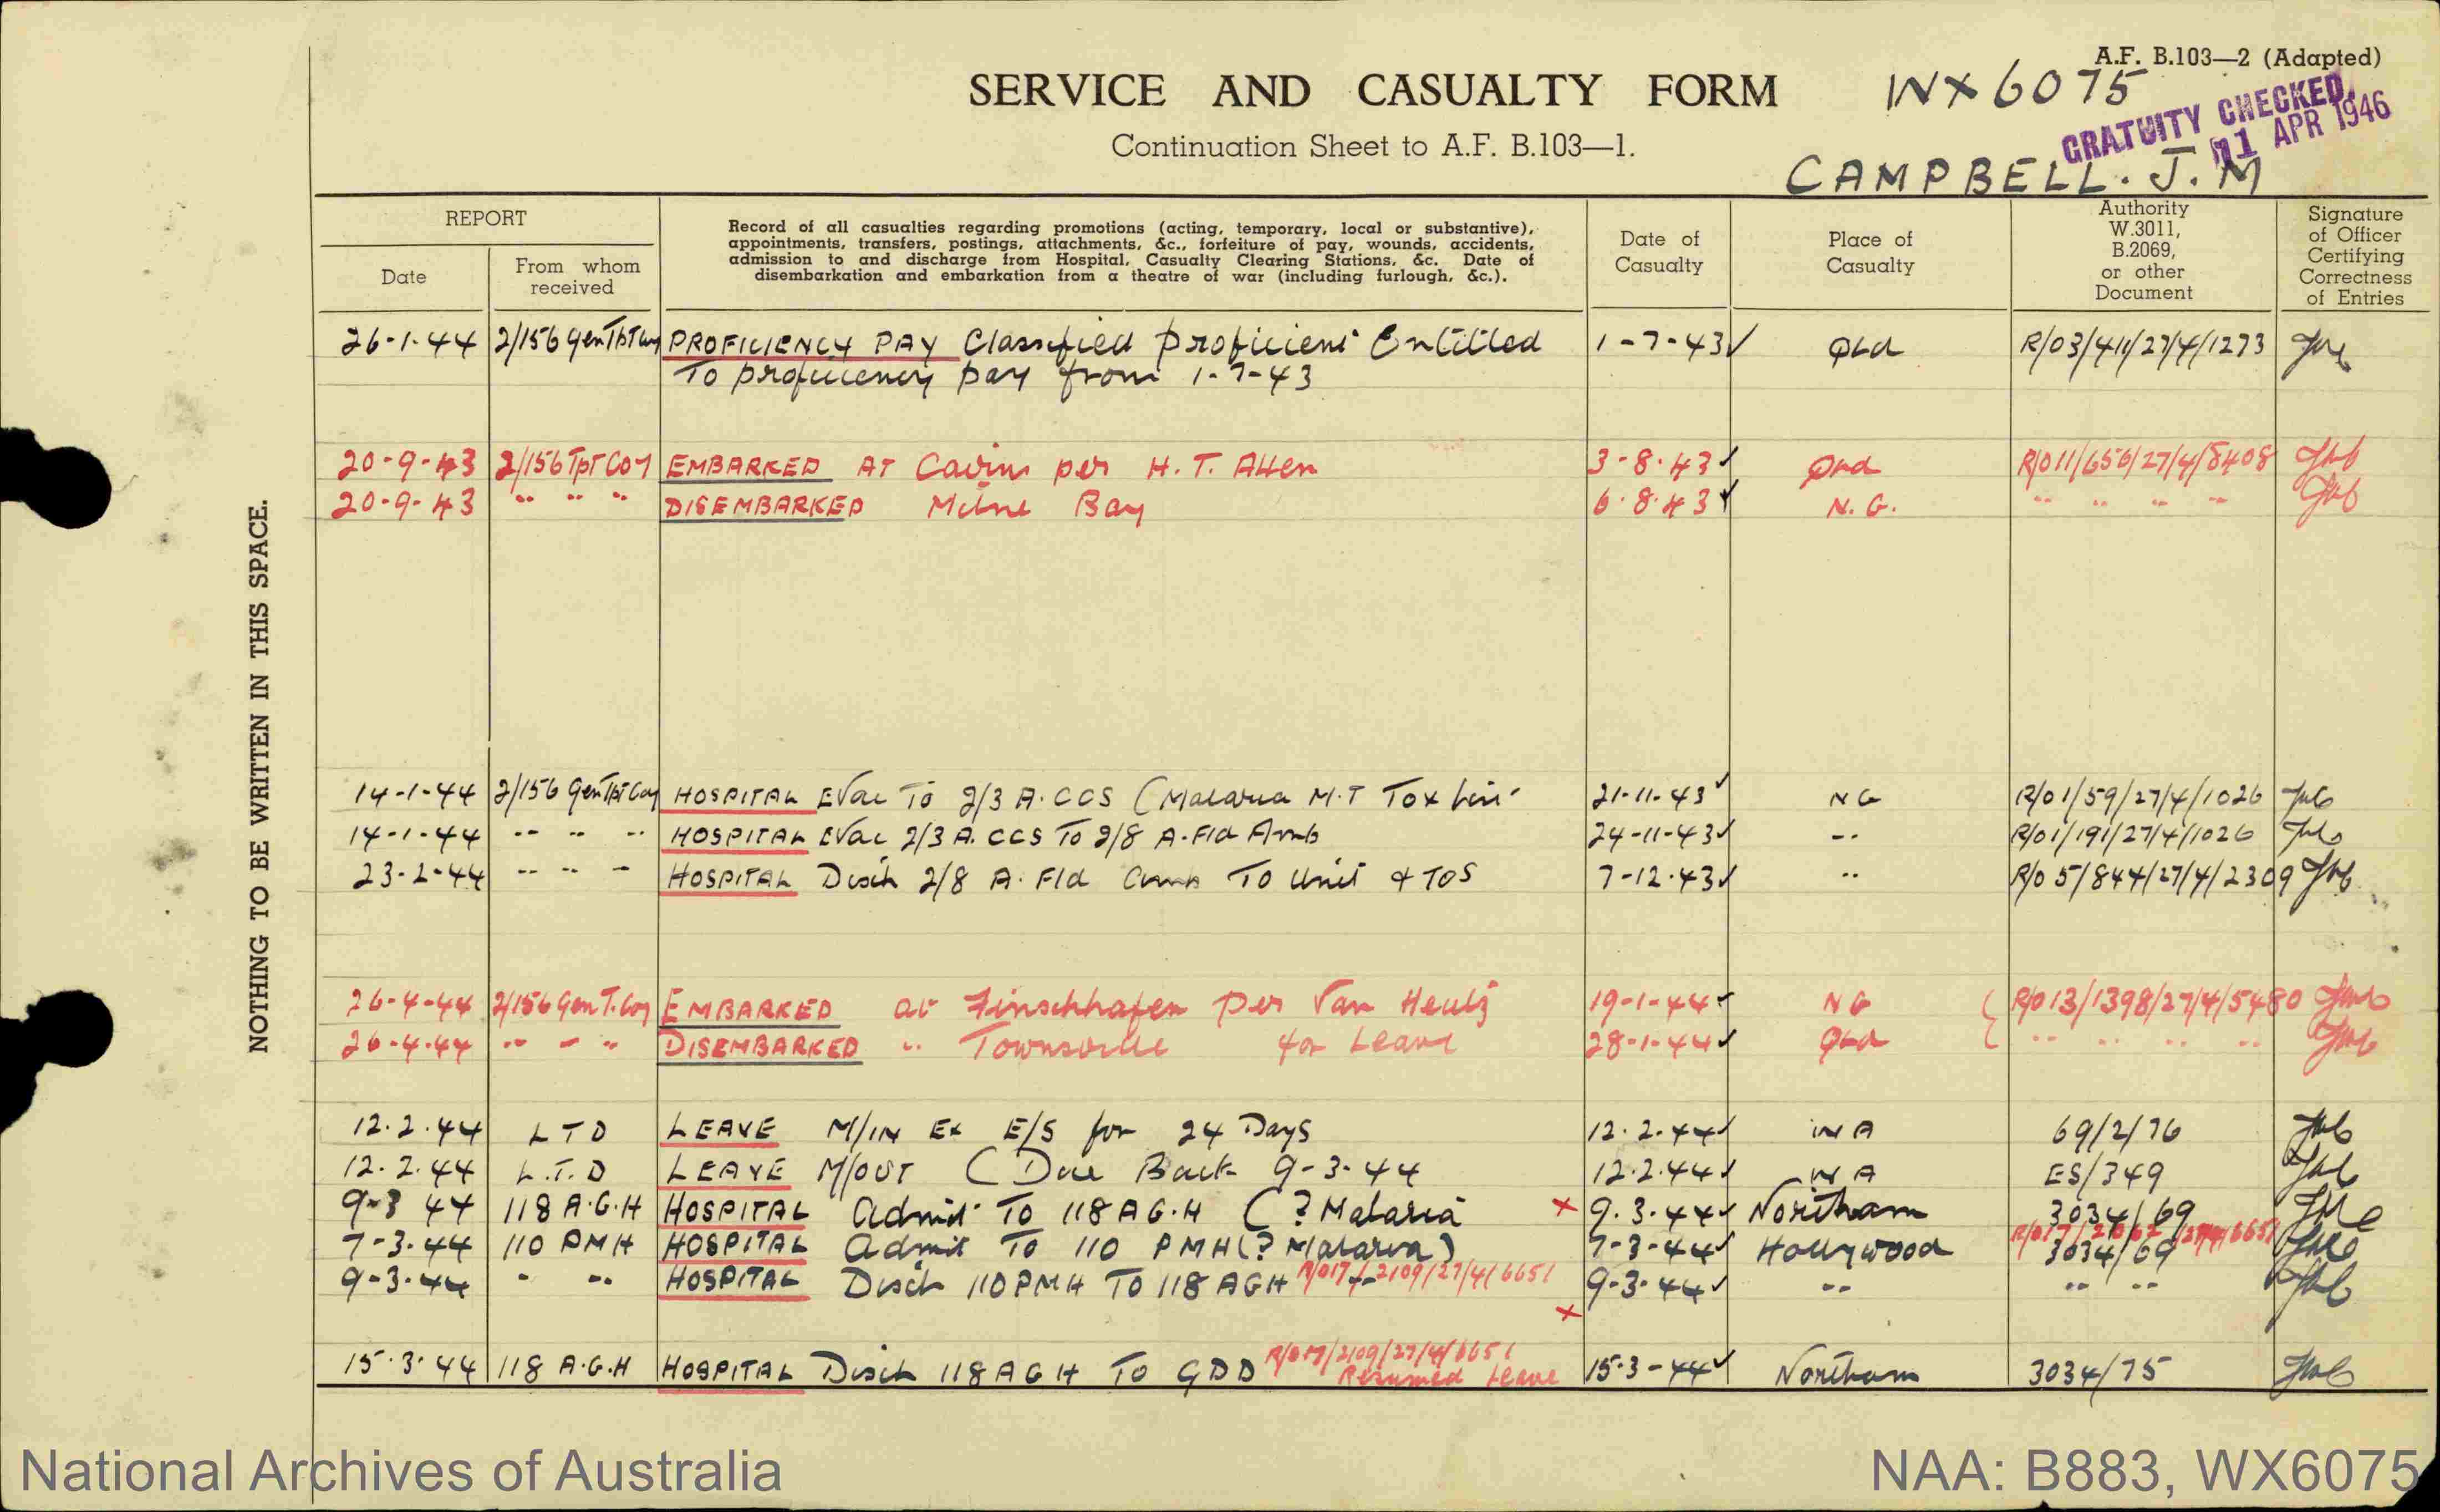 A.F. B.103—2 (Adapted)
SERVICE AND CASUALTY FORM WX6075
GRATUITY CHECKED
11 APR 1946
Continuation Sheet to A.F. B.103—1.
CAMPBELL. J. M
REPORT
Date
From whom received
Record of all casualties regarding promotions (acting, temporary, local or substantive),
appointments, transfers, postings, attachments, &c., forfeiture of pay, wounds, accidents,
admission to and discharge from Hospital, Casualty Clearing Stations, &c. Date of
disembarkation and embarkation from a theatre of war (including furlough, &c.).
Date of Casualty
Place of Casualty
Authority W.3011, B.2069, or other Document
Signature of Officer Certifying Correctness of Entries
NOTHING TO BE WRITTEN IN THIS SPACE.
26-1-44 2/156 Gen Tpt Coy PROFICIENCY PAY Classified Proficient Entitled 1-7-43 Qld R/03/411/27/4/1273
To proficiency pay from 1-7-43
20-9-43 2/156 Tpt Coy EMBARKED AT Cairns per H. T. Allen 3-8-43 Qld R/011/656/27/4/8408
20-9-43 " " " DISEMBARKED Milne Bay 6.8.43 N.G. " " " "
14-1-44 2/156 Gen Tpt Coy HOSPITAL Evac To 2/3 A.CCS (Malaria M.T 21-11-43 NG R/01/59/27/4/1026
14-1-44 " " " HOSPITAL Evac 2/3 A. CCS To 2/8 A. Fld Amb 24-11-43 " R/01/191/27/4/1026
23-2-44 " " " HOSPITAL Disch 2/8 A. Fld To Unit & TOS 7-12-43 " R/05/844/27/4/2309
26-4-44 2/156 Gen T. Coy EMBARKED at Finschhafen per Van Heutz 19-1-44 NG R/013/1398/27/4/5480
26-4-44 " " " DISEMBARKED " Townsville for Leave 28-1-44 Qld " " " "
12.2.44 LTD LEAVE M/IN Ex E/S for 24 Days 12.2.44 WA 69/2/76
12.2.44 L.T.D LEAVE M/OUT (Due Back 9-3-44 12.2.44 WA ES/349
9-3 44 118 A.G.H HOSPITAL Admit To 118 AG.H (? Malaria x 9.3.44 Northam 3034/69
7-3-44 110 PMH HOSPITAL Admit To 110 PMH (? Malaria) 7-3-44 Hollywood 3034/69
9-3-44 " " HOSPITAL Disch 110 PMH To 118 AGH R/017/2109/27/4/6651 9-3-44 " " "
x
R/017/2109/27/4/6651
15.3.44 118 A.G.H HOSPITAL Disch 118 AGH To GDD Resumed Leave 15-3-44 Northam 3034/75
National Archives of Australia
NAA: B883, WX6075